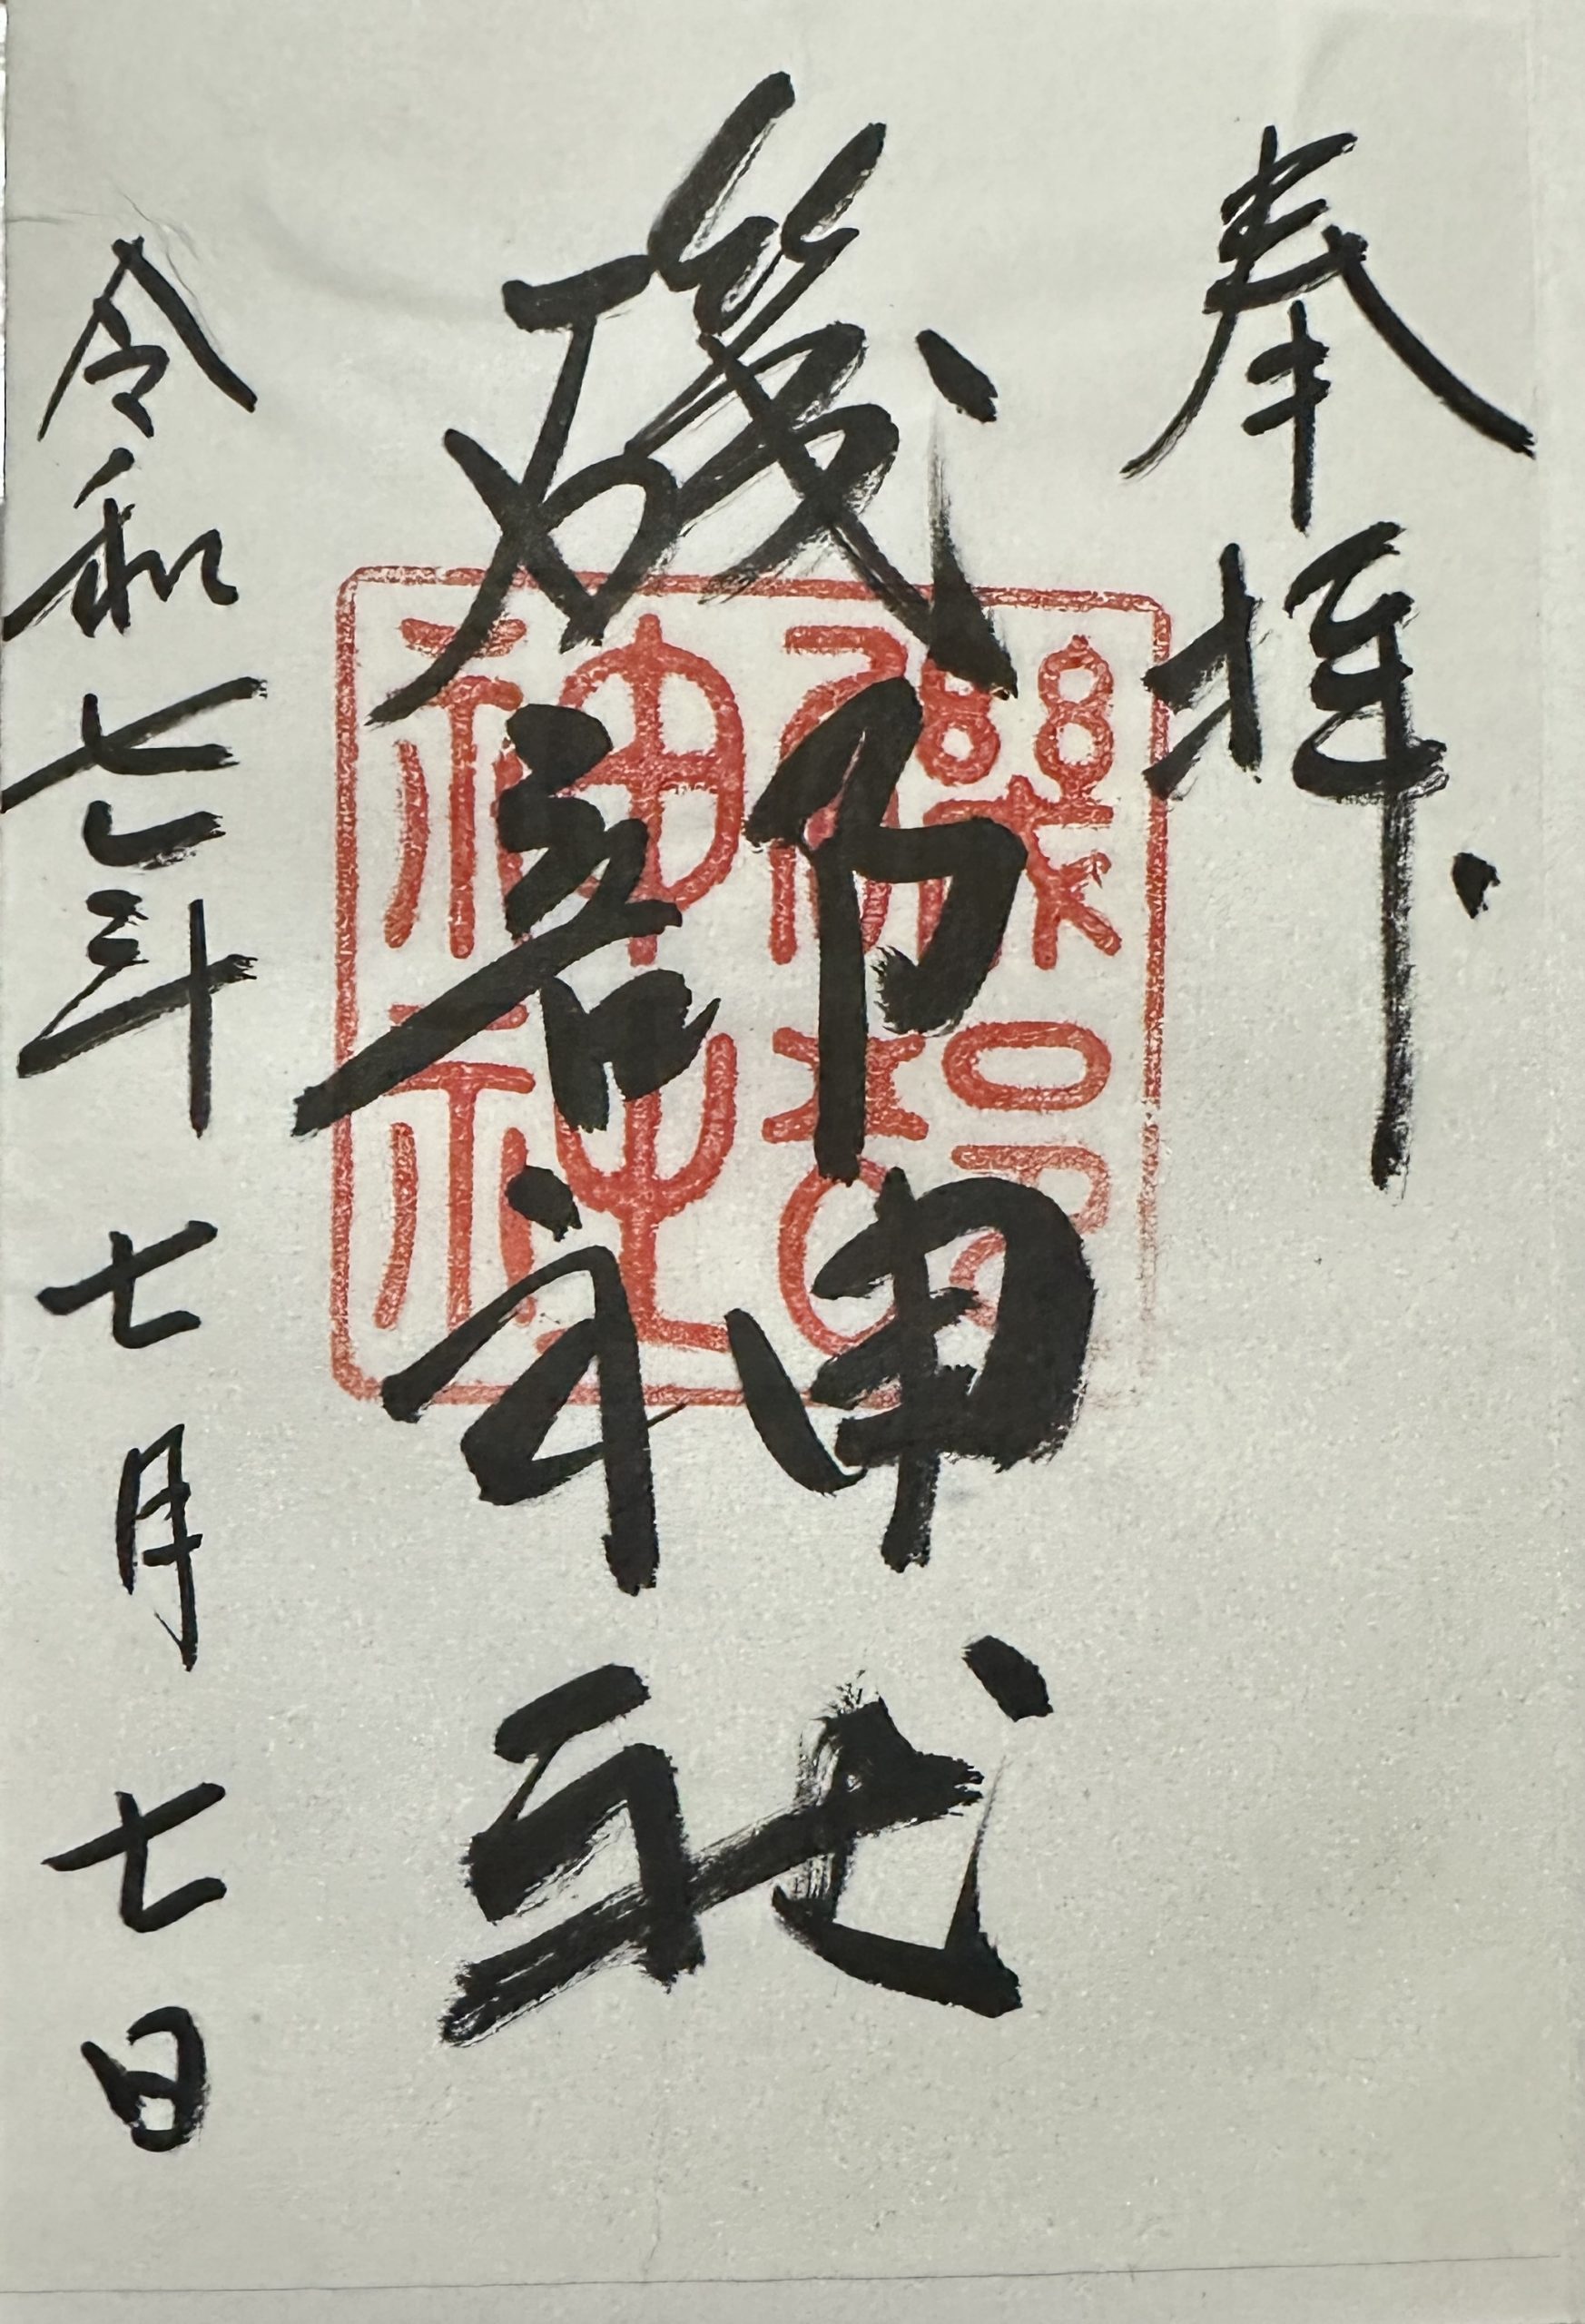 奉拝
磯部神社
磯部神社
令和七年七月七日